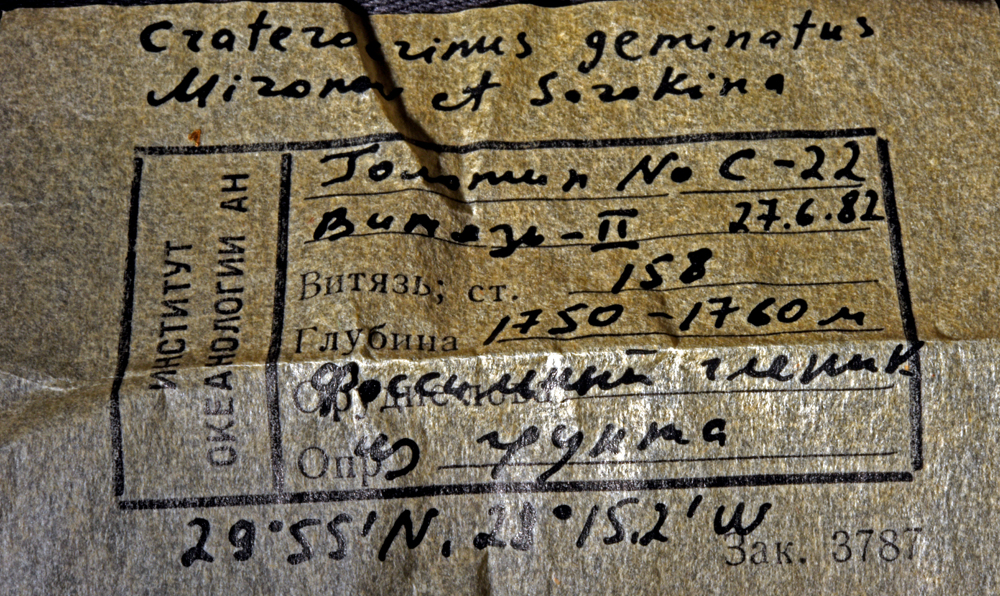 Craterocrinus geminatus
Mironov et Sorokina
ИНСТИТУТ
ОКЕАНОЛОГИИ АН
Голотип No С-22
Витязь-II 27.6.82
Витязь; ст. 158
Глубина 1750-1760 м
Фоссильный членик
Опр из грунта
29°55'N, 28°15.2'W
Зак. 3787